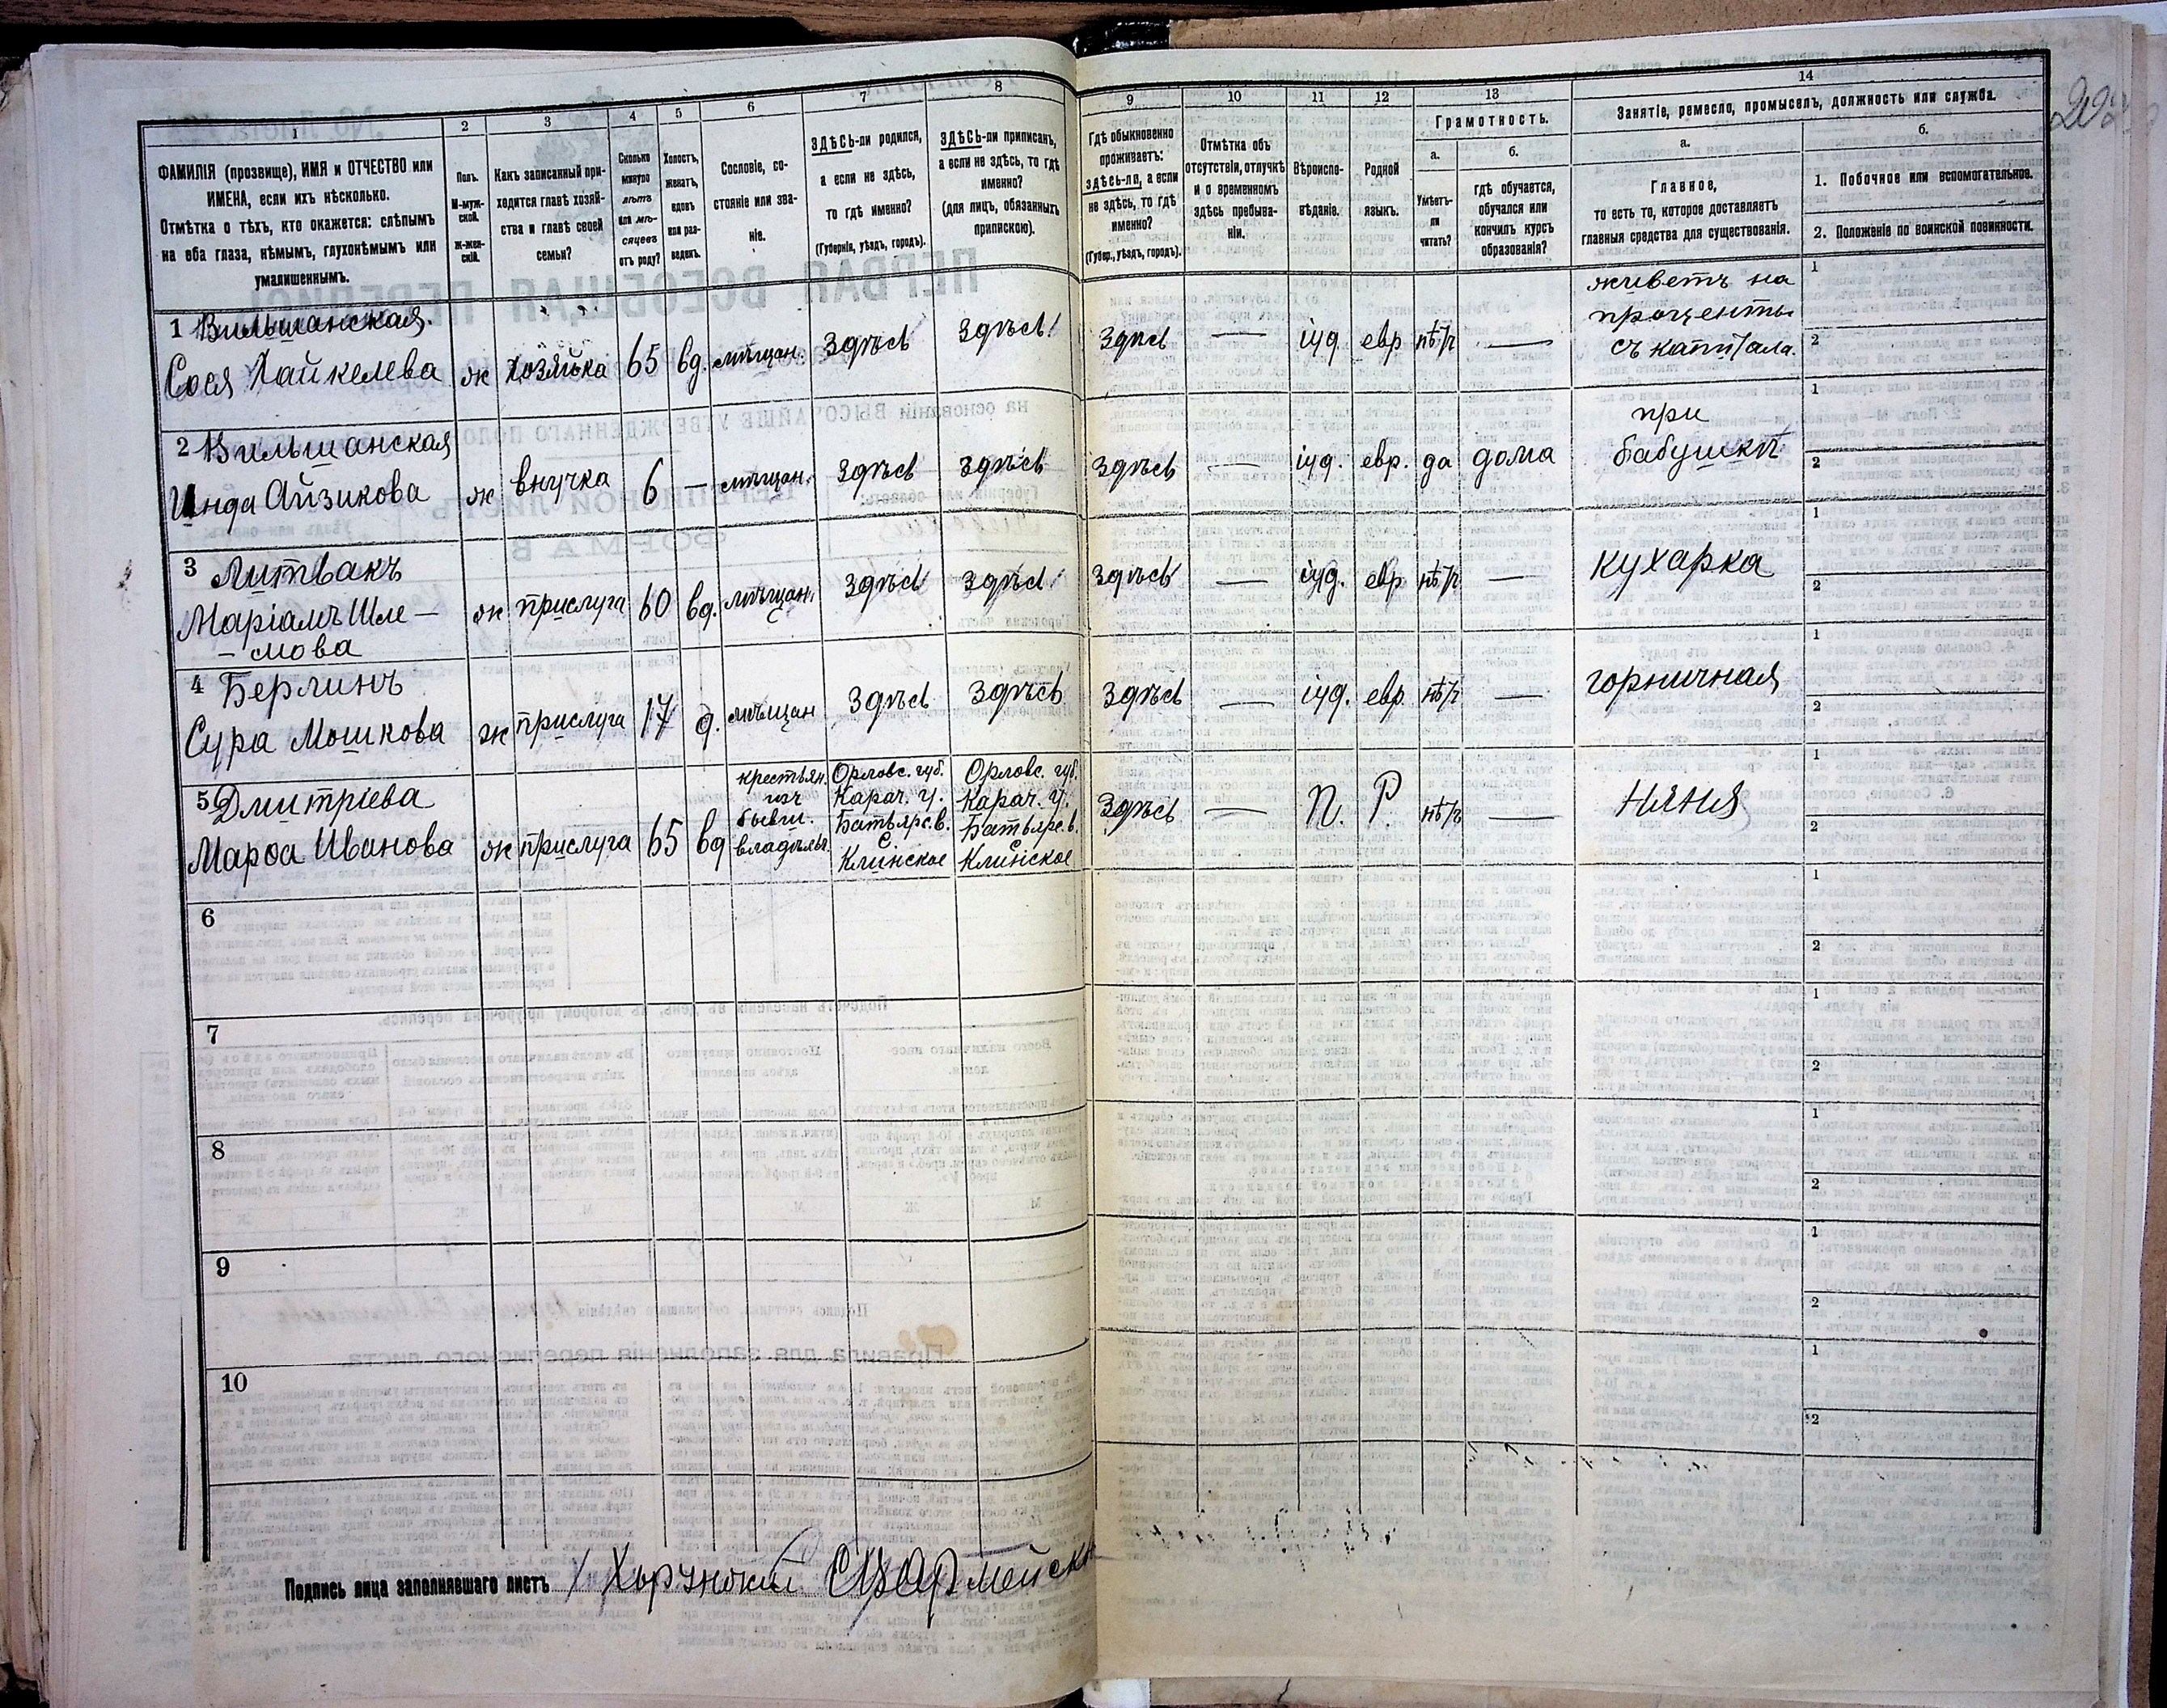 1
2
3
4
5
6
7
8
9
10
11
12
13
14
ФАМИЛІЯ (прозвище), ИМЯ и ОТЧЕСТВО или
ИМЕНА, если ихъ нѣсколько.
Отмѣтка о тѣхъ, кто окажется: слѣпымъ
на оба глаза, нѣмымъ, глухонѣмымъ или
умалишеннымъ.
Полъ.
М-муж-
ской.
Ж-жен-
скій.
Какъ записанный при-
ходится главѣ хозяй-
ства и главѣ своей
семьи?
Сколько
минуло
лѣтъ
или мѣ-
сяцевъ
отъ роду?
Холостъ,
женатъ,
вдовъ
или раз-
веденъ.
Сословіе, со-
стояніе или зва-
ніе.
ЗДѢСЬ-ли родился,
а если не здѣсь,
то гдѣ именно?
(Губернія, уѣздъ, городъ).
ЗДѢСЬ-ли приписанъ,
а если не здѣсь, то гдѣ
именно?
(для лицъ, обязанныхъ
припискою).
Гдѣ обыкновенно
проживаетъ:
здѣсь-ли, а если
не здѣсь, то гдѣ
именно?
(Губер., уѣздъ, городъ).
Отмѣтка объ
отсутствіи, отлучкѣ
и о временномъ
здѣсь пребыва-
ніи.
Вѣроиспо-
вѣданіе.
Родной
языкъ.
Грамотность.
а.
Умѣетъ-
ли
читать?
б.
гдѣ обучается,
обучался или
кончилъ курсъ
образованія?
Занятіе, ремесло, промыселъ, должность или служба.
а.
Главное,
то есть то, которое доставляетъ
главныя средства для существованія.
б.
1. Побочное или вспомогательное.
2. Положеніе по воинской повинности.
1 Вильшанская
Сося Хайкелева ж хозяйка 65 вд. мѣщан. Здѣсь Здѣсь Здѣсь — іуд. евр нѣтъ —
живетъ на
проценты
съ капитала.
1
2
2 Вильшанская
Инда Айзикова ж внучка 6 — мѣщан. Здѣсь Здѣсь Здѣсь — іуд. евр. да дома
при
бабушкѣ
1
2
3 Литвакъ
Маріамъ Шле-
-мова
ж прислуга 60 вд. мѣщан. Здѣсь Здѣсь Здѣсь — іуд. евр нѣтъ — кухарка
1
2
4 Берлинъ
Сура Мошкова ж прислуга 17 д. мѣщан Здѣсь Здѣсь Здѣсь — іуд. евр. нѣтъ — горничная
1
2
5 Дмитріева
Марѳа Иванова ж прислуга 65 вд
крестьян.
изъ
бывш.
владѣльч.
Орловс. губ.
Карач. у.
с.
Клинское
Орловс. губ.
Карач. у.
с.
Клинское
Здѣсь — П. Р. нѣтъ — няня
1
2
6
1
2
7
1
2
8
1
2
9
1
2
10
1
2
Подпись лица заполнявшаго листъ